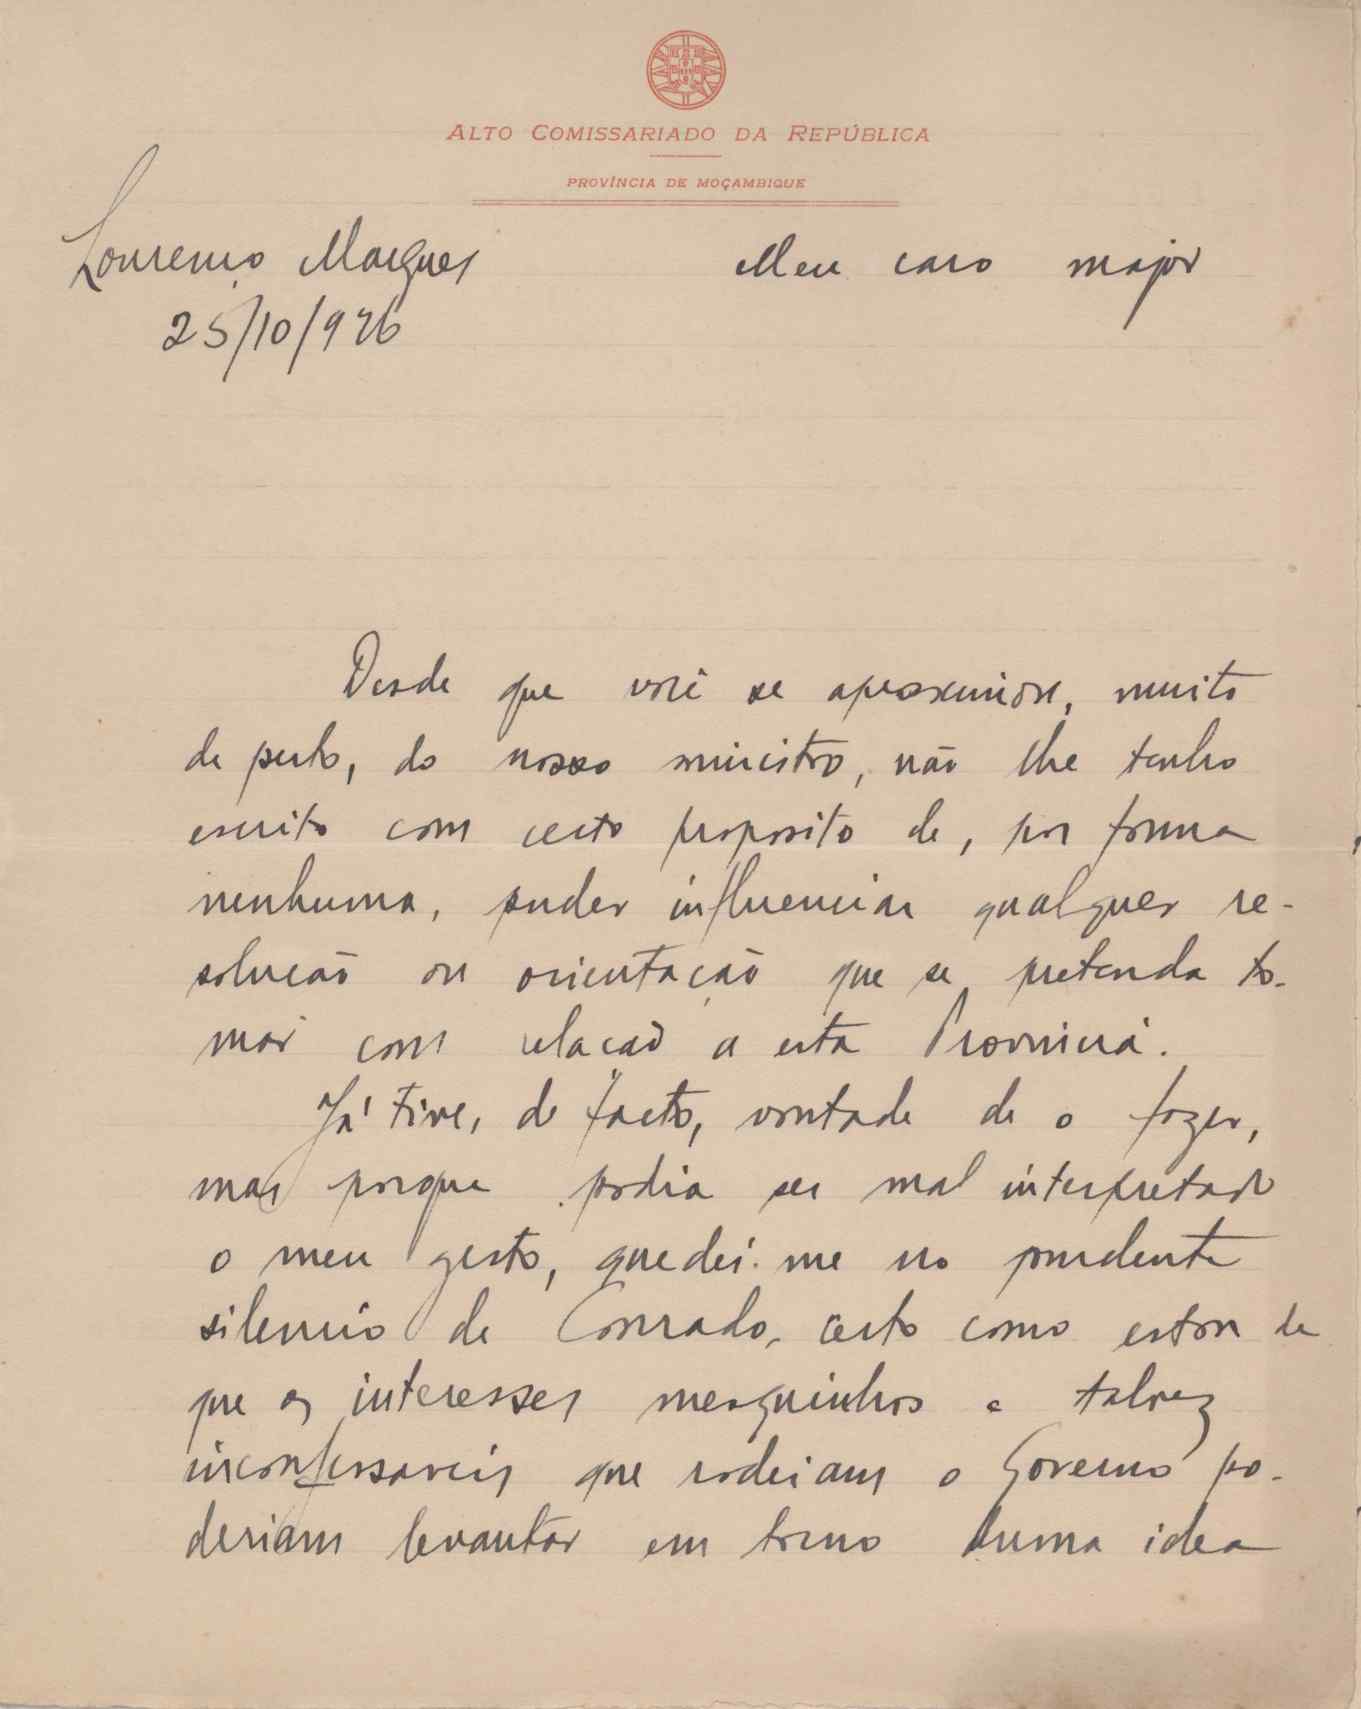 ALTO COMISSARIADO DA REPÚBLICA
PROVÍNCIA DE MOÇAMBIQUE
Lourenço Marques
25/10/926
Meu caro major
Desde que você se aproximou, muito
de perto, do nosso ministro, não lhe tenho
escrito com certo proposito de, por forma
nenhuma, puder influenciar qualquer re-
solução ou orientação que se pretenda to-
mar com relação a esta Provincia.
Já tive, de facto, vontade de o fazer,
mas porque podia ser mal interpretado
o meu gesto, quedei-me no prudente
silencio de Conrado, certo como estou de
que os interesses mesquinhos e talvez
inconfessaveis que rodeiam o Governo po-
deriam levantar em torno duma idea